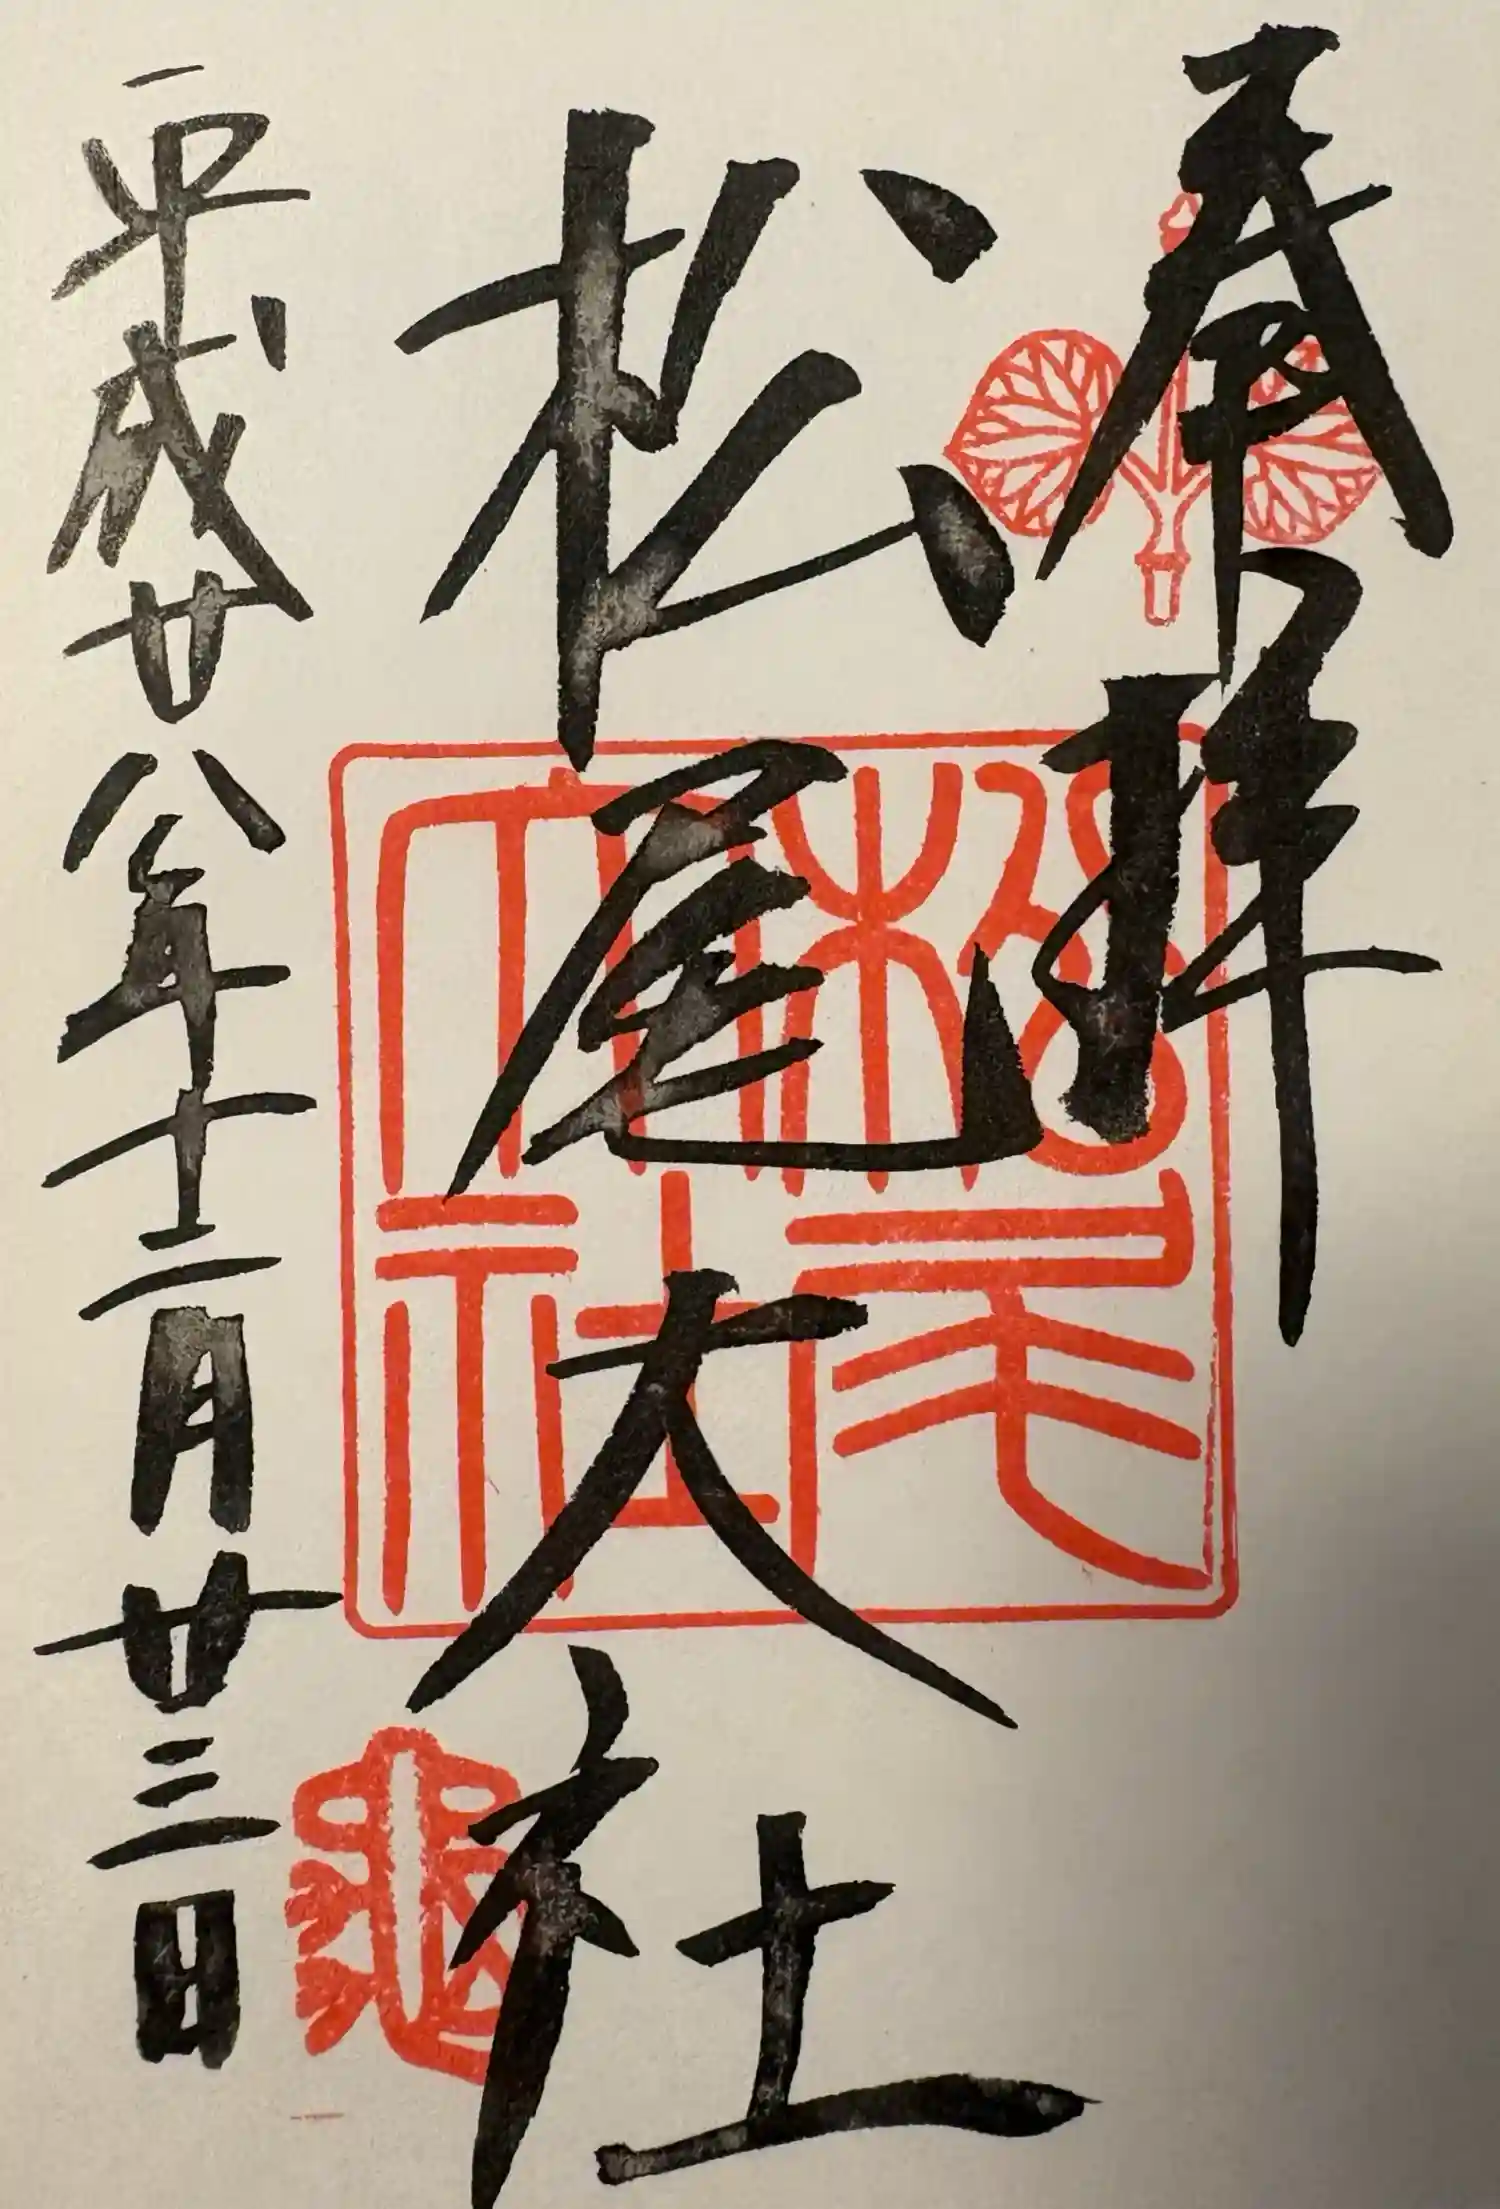 奉拝
松尾大社
平成廿八年十二月廿三日
松尾大社